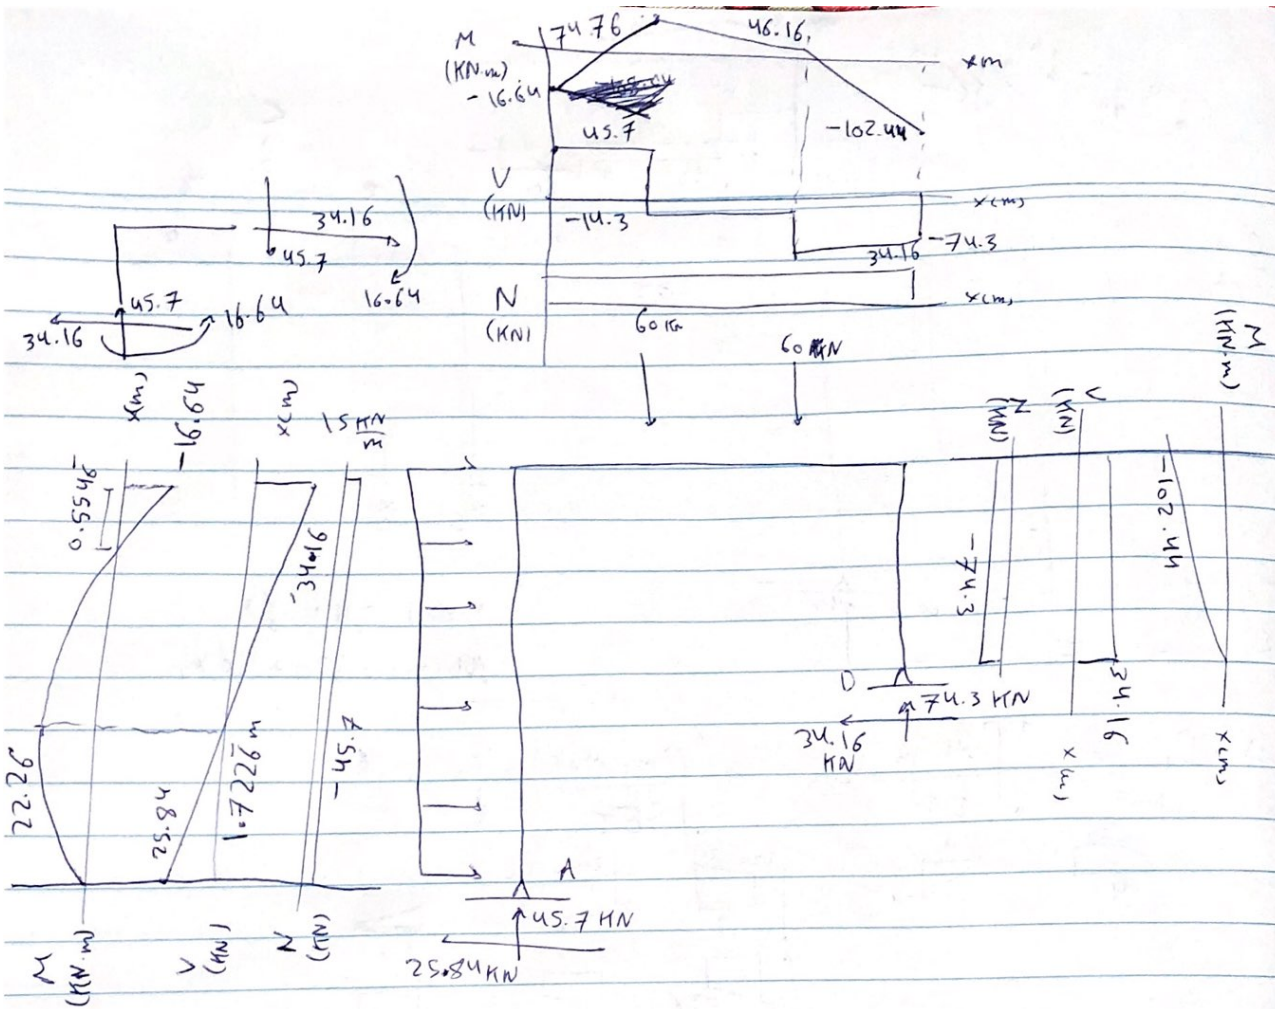 M
(KN.m)
74.76
46.16
x m
-16.64
-102.44
45.7
V
(KN)
-14.3
x(m)
-74.3
34.16
N
(KN)
x(m)
34.16
45.7
16.64
45.7
16.64
34.16
60 KN
60 KN
x(m)
-16.64
x(m)
15 KN/m
0.5546
-34.16
22.26
25.84
1.7226 m
-45.7
M
(KN.m)
V
(KN)
N
(KN)
A
45.7 KN
25.84 KN
D
74.3 KN
34.16
KN
N
(KN)
V
(KN)
M
(KN.m)
-74.3
34.16
-102.44
x(m)
x(m)